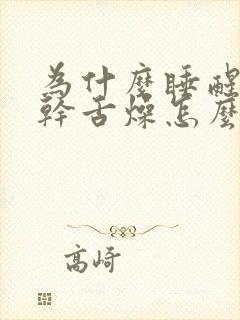 為什麼睡醒
幹舌燥怎麼
高崎